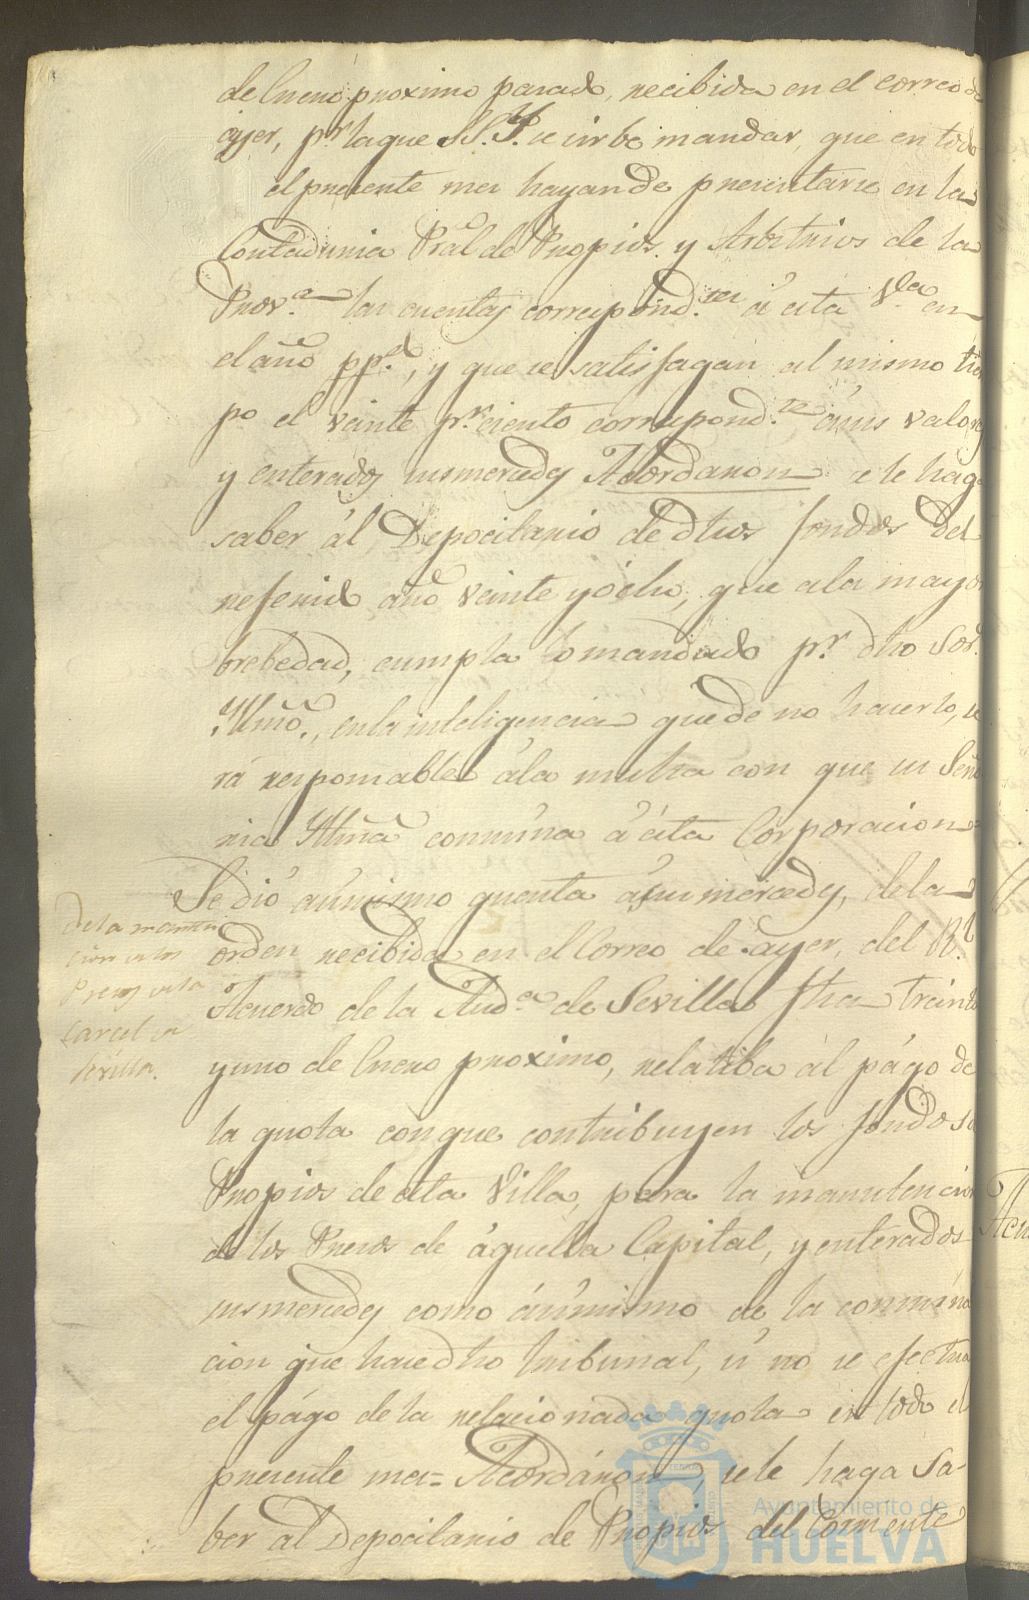 de Enero proximo pasado, recibida en el Correo de
ayer, pr. la que S.S.Y. se sirbe mandar, que en todo
el presente mes hayan de presentarse en la
Contaduria Pral de Propios y Arbitrios de la
Prov.a las cuentas correspond.tes á esta V.a en
el año pp.do, y que se satisfagan al mismo tiem
po el veinte pr. ciento correspond.te á sus valores
y enterados sus mercedes Acordaron se le haga
saber ál Depocitario de dhos fondos del
referido año veinte y ócho, que a la mayor
brebedad, cumpla lo mandado pr. dho Sor.
Yllmô., en la inteligencia que de no hacerlo, se
rá responsable á la multa con que su Seño
ria Yllmâ conmina á ésta Corporacion=
Se dió asimismo quenta á sus mercedes, de la
orden recibida en el Correo de ayer, del Rl.
Acuerdo de la Aud.a de Sevilla fha treinta
y uno de Enero proximo, relatiba ál págo de
la quota con que contribuyen los fondos de
Propios de esta Villa, para la manutencion
de los Presos de áquella Capital, y enterados
sus mercedes como ásimismo de la conmina
cion que hace dho tribunal, si no se efectua
el págo de la relacionada quota en todo el
presente mes= Acordáron se le haga Sa-
ber al Depocitario de Propios del Corriente
De la manten
cion de los
Presos de la
Carcel de
Sevilla.
Acu
Ayuntamiento de
HUELVA